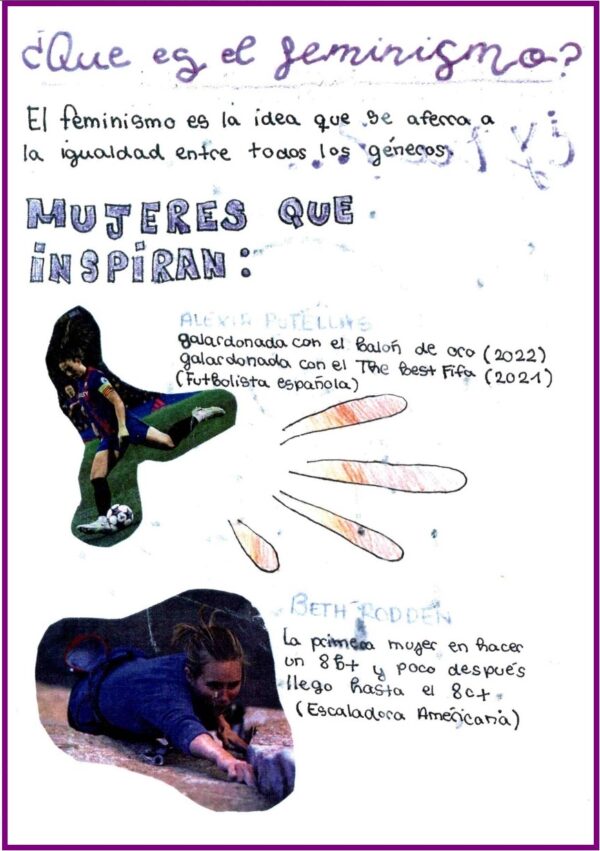 ¿Que es el feminismo?
El feminismo es la idea que se aferra a
la igualdad entre todos los géneros
MUJERES QUE
INSPIRAN:
ALEXIA PUTELLAS
galardonada con el balón de oro (2022)
galardonada con el The Best Fifa (2021)
(Futbolista española)
BETH RODDEN
La primera mujer en hacer
un 8b+ y poco después
llego hasta el 8c+
(Escaladora Americana)